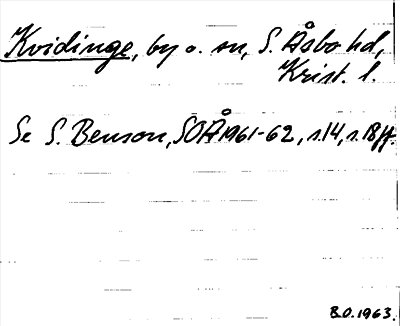 Kvidinge, by o. sn, S. Åsbo hd,
Krist. l.
Se S. Benson, SOÅ 1961-62, s. 14, s. 18 ff.
B.O. 1963.